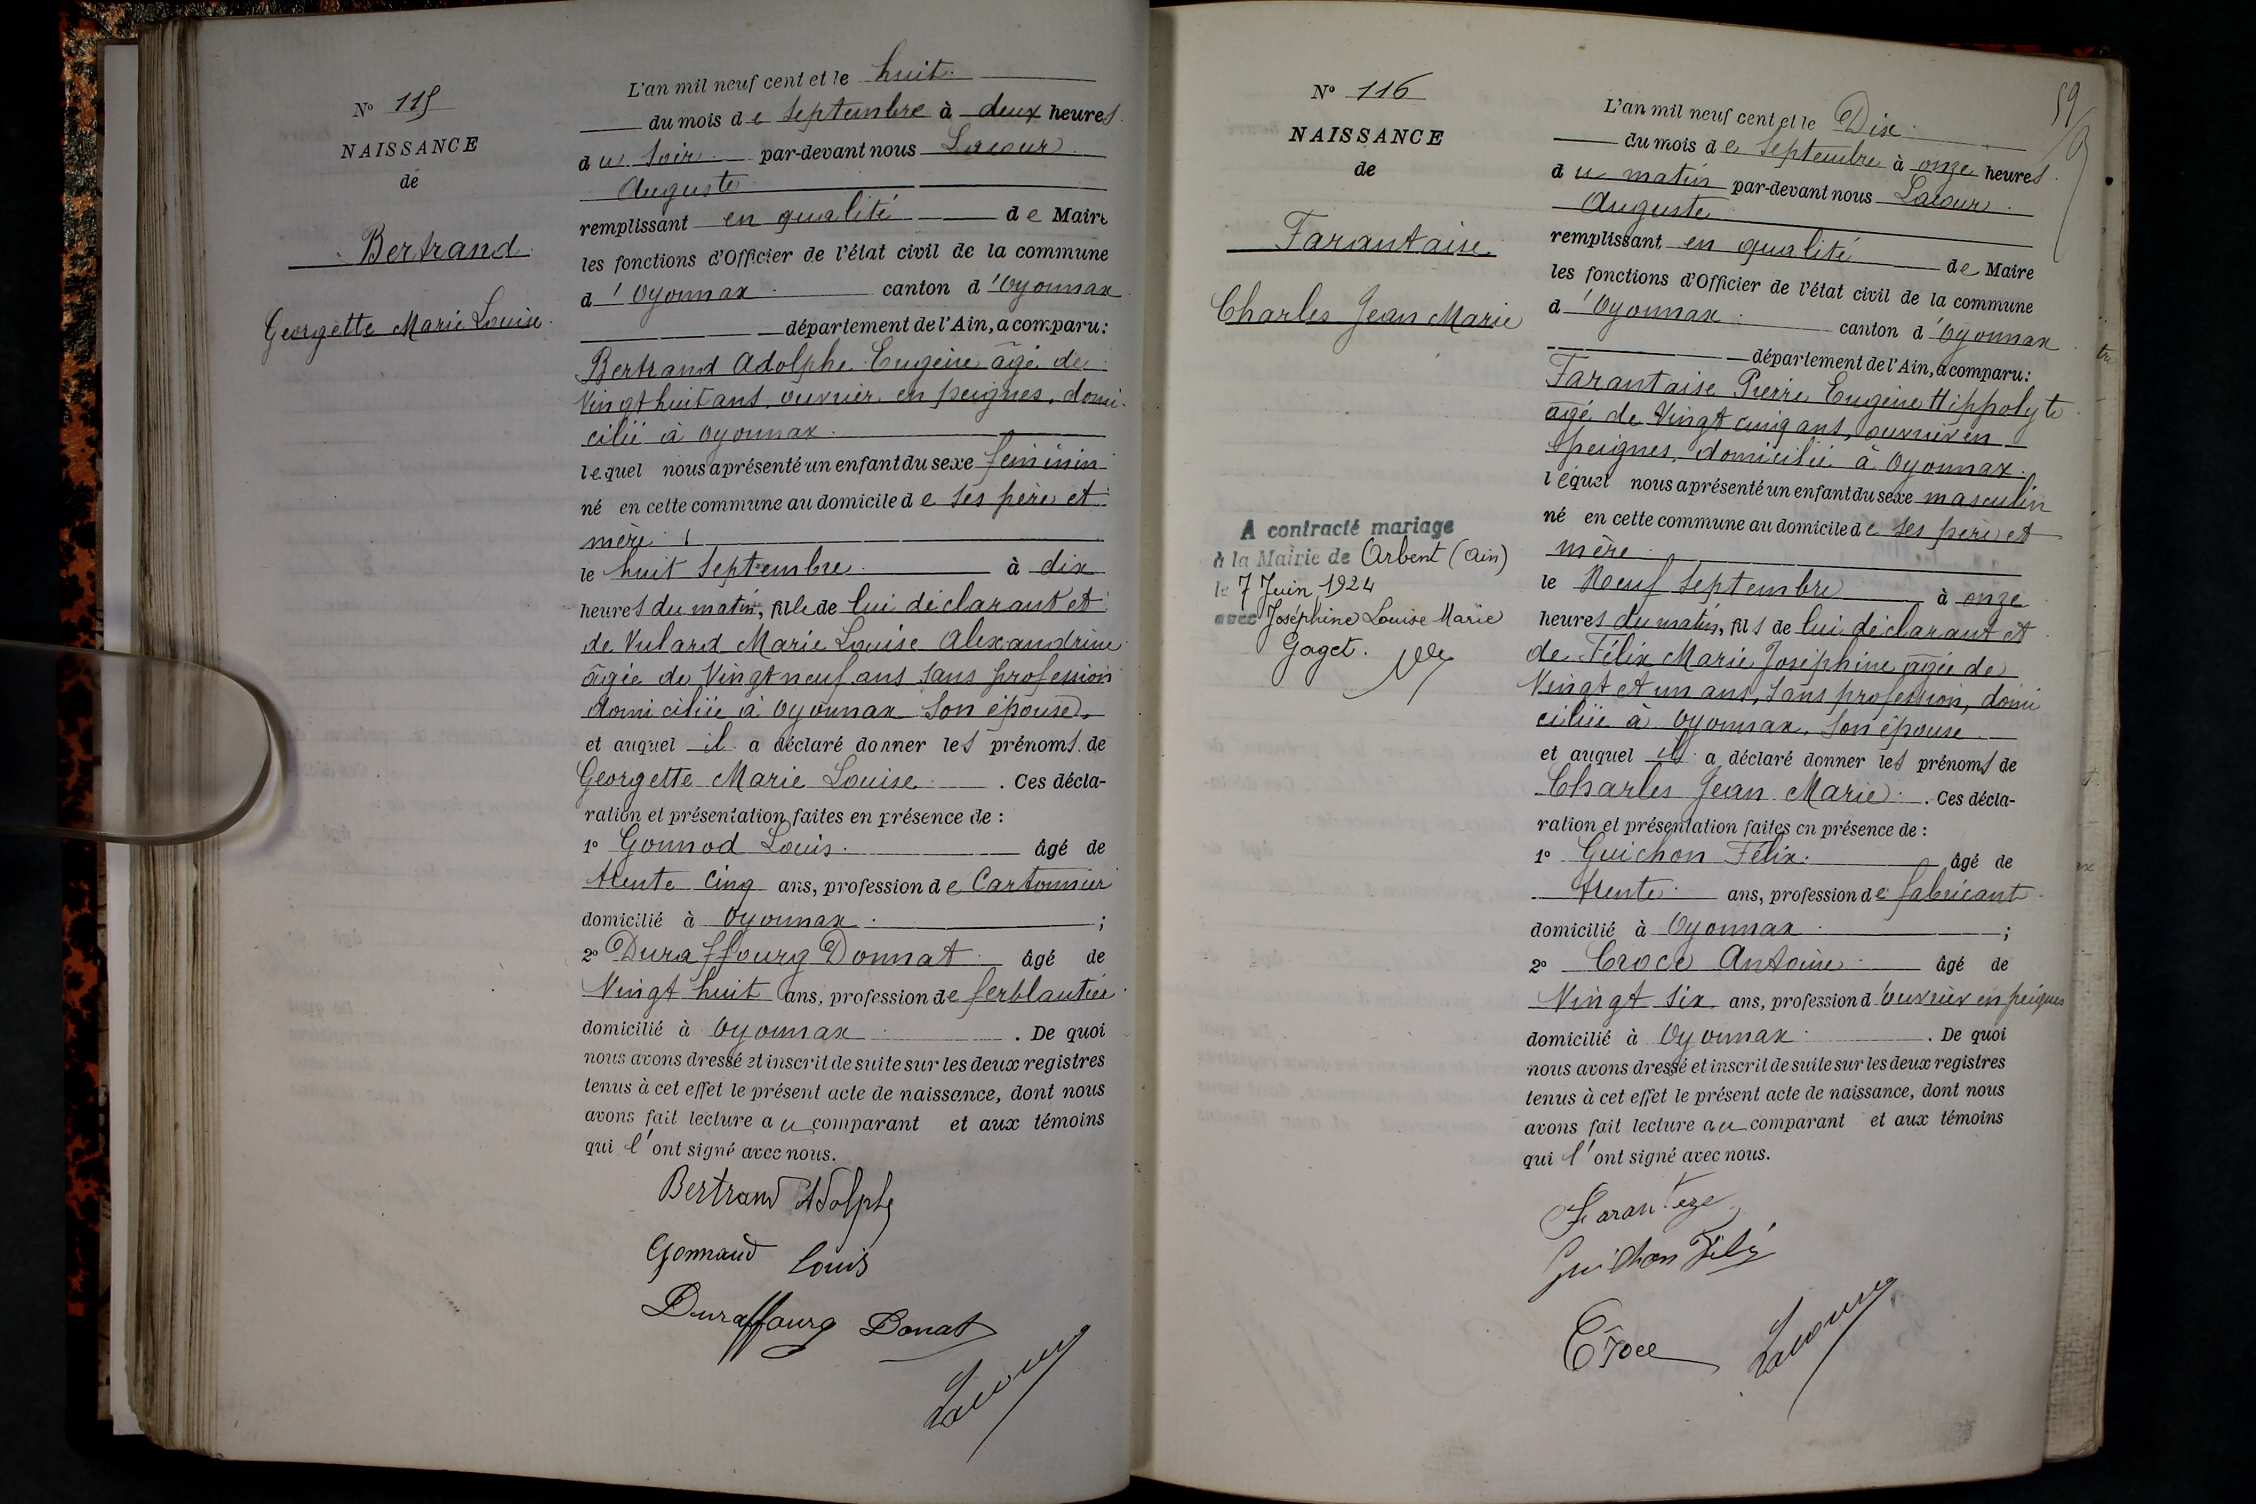 N° 115
NAISSANCE
de
Bertrand
Georgette Marie Louise
L'an mil neuf cent et le huit
du mois de Septembre à deux heures
du soir par-devant nous Lacour
Auguste
remplissant en qualité de Maire
les fonctions d'Officier de l'état civil de la commune
d'Oyonnax canton d'Oyonnax
département de l'Ain, a comparu:
Bertrand Adolphe Eugène âgé de
Vingt huit ans, ouvrier en peignes, domi-
cilié à Oyonnax
lequel nous a présenté un enfant du sexe féminin
né en cette commune au domicile de ses père et
mère
le huit Septembre à dix
heures du matin, fille de lui déclarant et
de Vulard Marie Louise Alexandrine
âgée de Vingt neuf ans sans profession
domiciliée à Oyonnax son épouse,
et auquel il a déclaré donner les prénoms de
Georgette Marie Louise . Ces décla-
ration et présentation faites en présence de :
1° Gonnod Louis âgé de
trente cinq ans, profession de Cartonnier
domicilié à Oyonnax ;
2° Duraffourg Donnat âgé de
Vingt huit ans, profession de ferblantier
domicilié à Oyonnax . De quoi
nous avons dressé et inscrit de suite sur les deux registres
tenus à cet effet le présent acte de naissance, dont nous
avons fait lecture au comparant et aux témoins
qui l'ont signé avec nous.
Bertrand Adolphe
Gonnaud Louis
Duraffourg Donat
Lacour
59
N° 116
NAISSANCE
de
Farantaise
Charles Jean Marie
A contracté mariage
à la Mairie de Arbent (Ain)
le 7 Juin 1924
avec Joséphine Louise Marie
Gaget.
L'an mil neuf cent et le Dix
du mois de Septembre à onze heures
du matin par-devant nous Lacour
Auguste
remplissant en qualité de Maire
les fonctions d'Officier de l'état civil de la commune
d'Oyonnax canton d'Oyonnax
département de l'Ain, a comparu:
Farantaise Pierre Eugène Hippolyte
âgé de Vingt cinq ans, ouvrier en
peignes, domicilié à Oyonnax
lequel nous a présenté un enfant du sexe masculin
né en cette commune au domicile de ses père et
mère
le Neuf Septembre à onze
heures du matin, fils de lui déclarant et
de Félix Marie Joséphine âgée de
Vingt et un ans, sans profession, domi
ciliée à Oyonnax, son épouse
et auquel il a déclaré donner les prénoms de
Charles Jean Marie . Ces décla-
ration et présentation faites en présence de :
1° Guichon Félix âgé de
trente ans, profession de fabricant
domicilié à Oyonnax ;
2° Croce Antoine âgé de
Vingt six ans, profession d'ouvrier en peignes
domicilié à Oyonnax . De quoi
nous avons dressé et inscrit de suite sur les deux registres
tenus à cet effet le présent acte de naissance, dont nous
avons fait lecture au comparant et aux témoins
qui l'ont signé avec nous.
Faranteze
Guichon Félix
Croce
Lacour